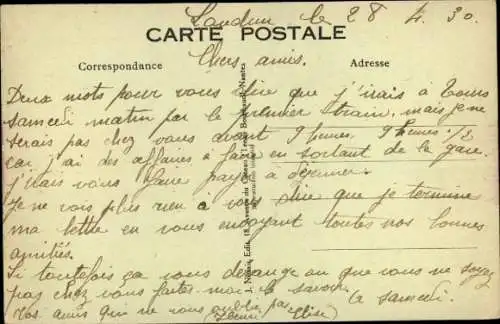 Loudun le 28 4. 30
CARTE POSTALE
Chers amis.
Correspondance Adresse
Deux mots pour vous dire que j'irais à Tours
samedi matin par le premier train, mais je ne
serais pas chez vous avant 9 heures 9 heures 1/2
car j'ai des affaires à faire en sortant de la gare.
j'irais vous faire payé à déjeuner.
Je ne vois plus rien a vous dire que je termine
ma lettre en vous envoyant toutes nos bonnes
amitiés.
Si toutefois ça vous dérange ou que vous ne soyez
pas chez vous faites-moi le savoir
a samedi.
Vos amis qui ne vous oublie pas
Elise